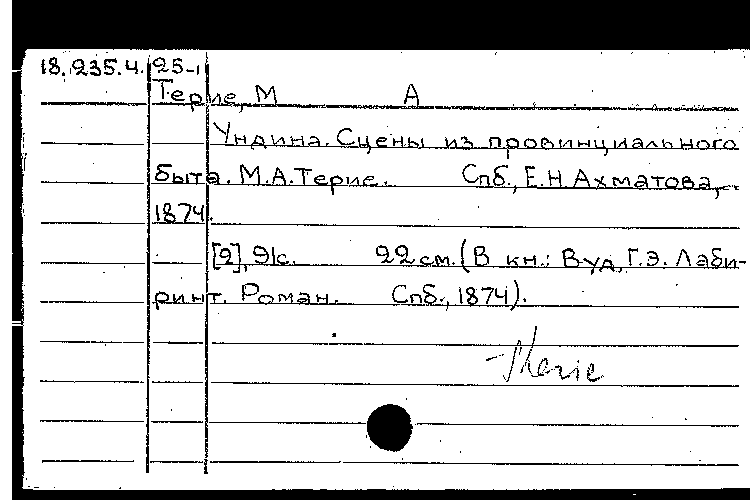 18.235.4. 25-1
Терие, М А
Ундина. Сцены из провинциального
быта. М.А.Терие. Спб., Е.Н.Ахматова,
1874.
[2], 91с. 22 см. (В кн.: Вуд, Г.Э. Лаби-
ринт. Роман. Спб., 1874).
Therie